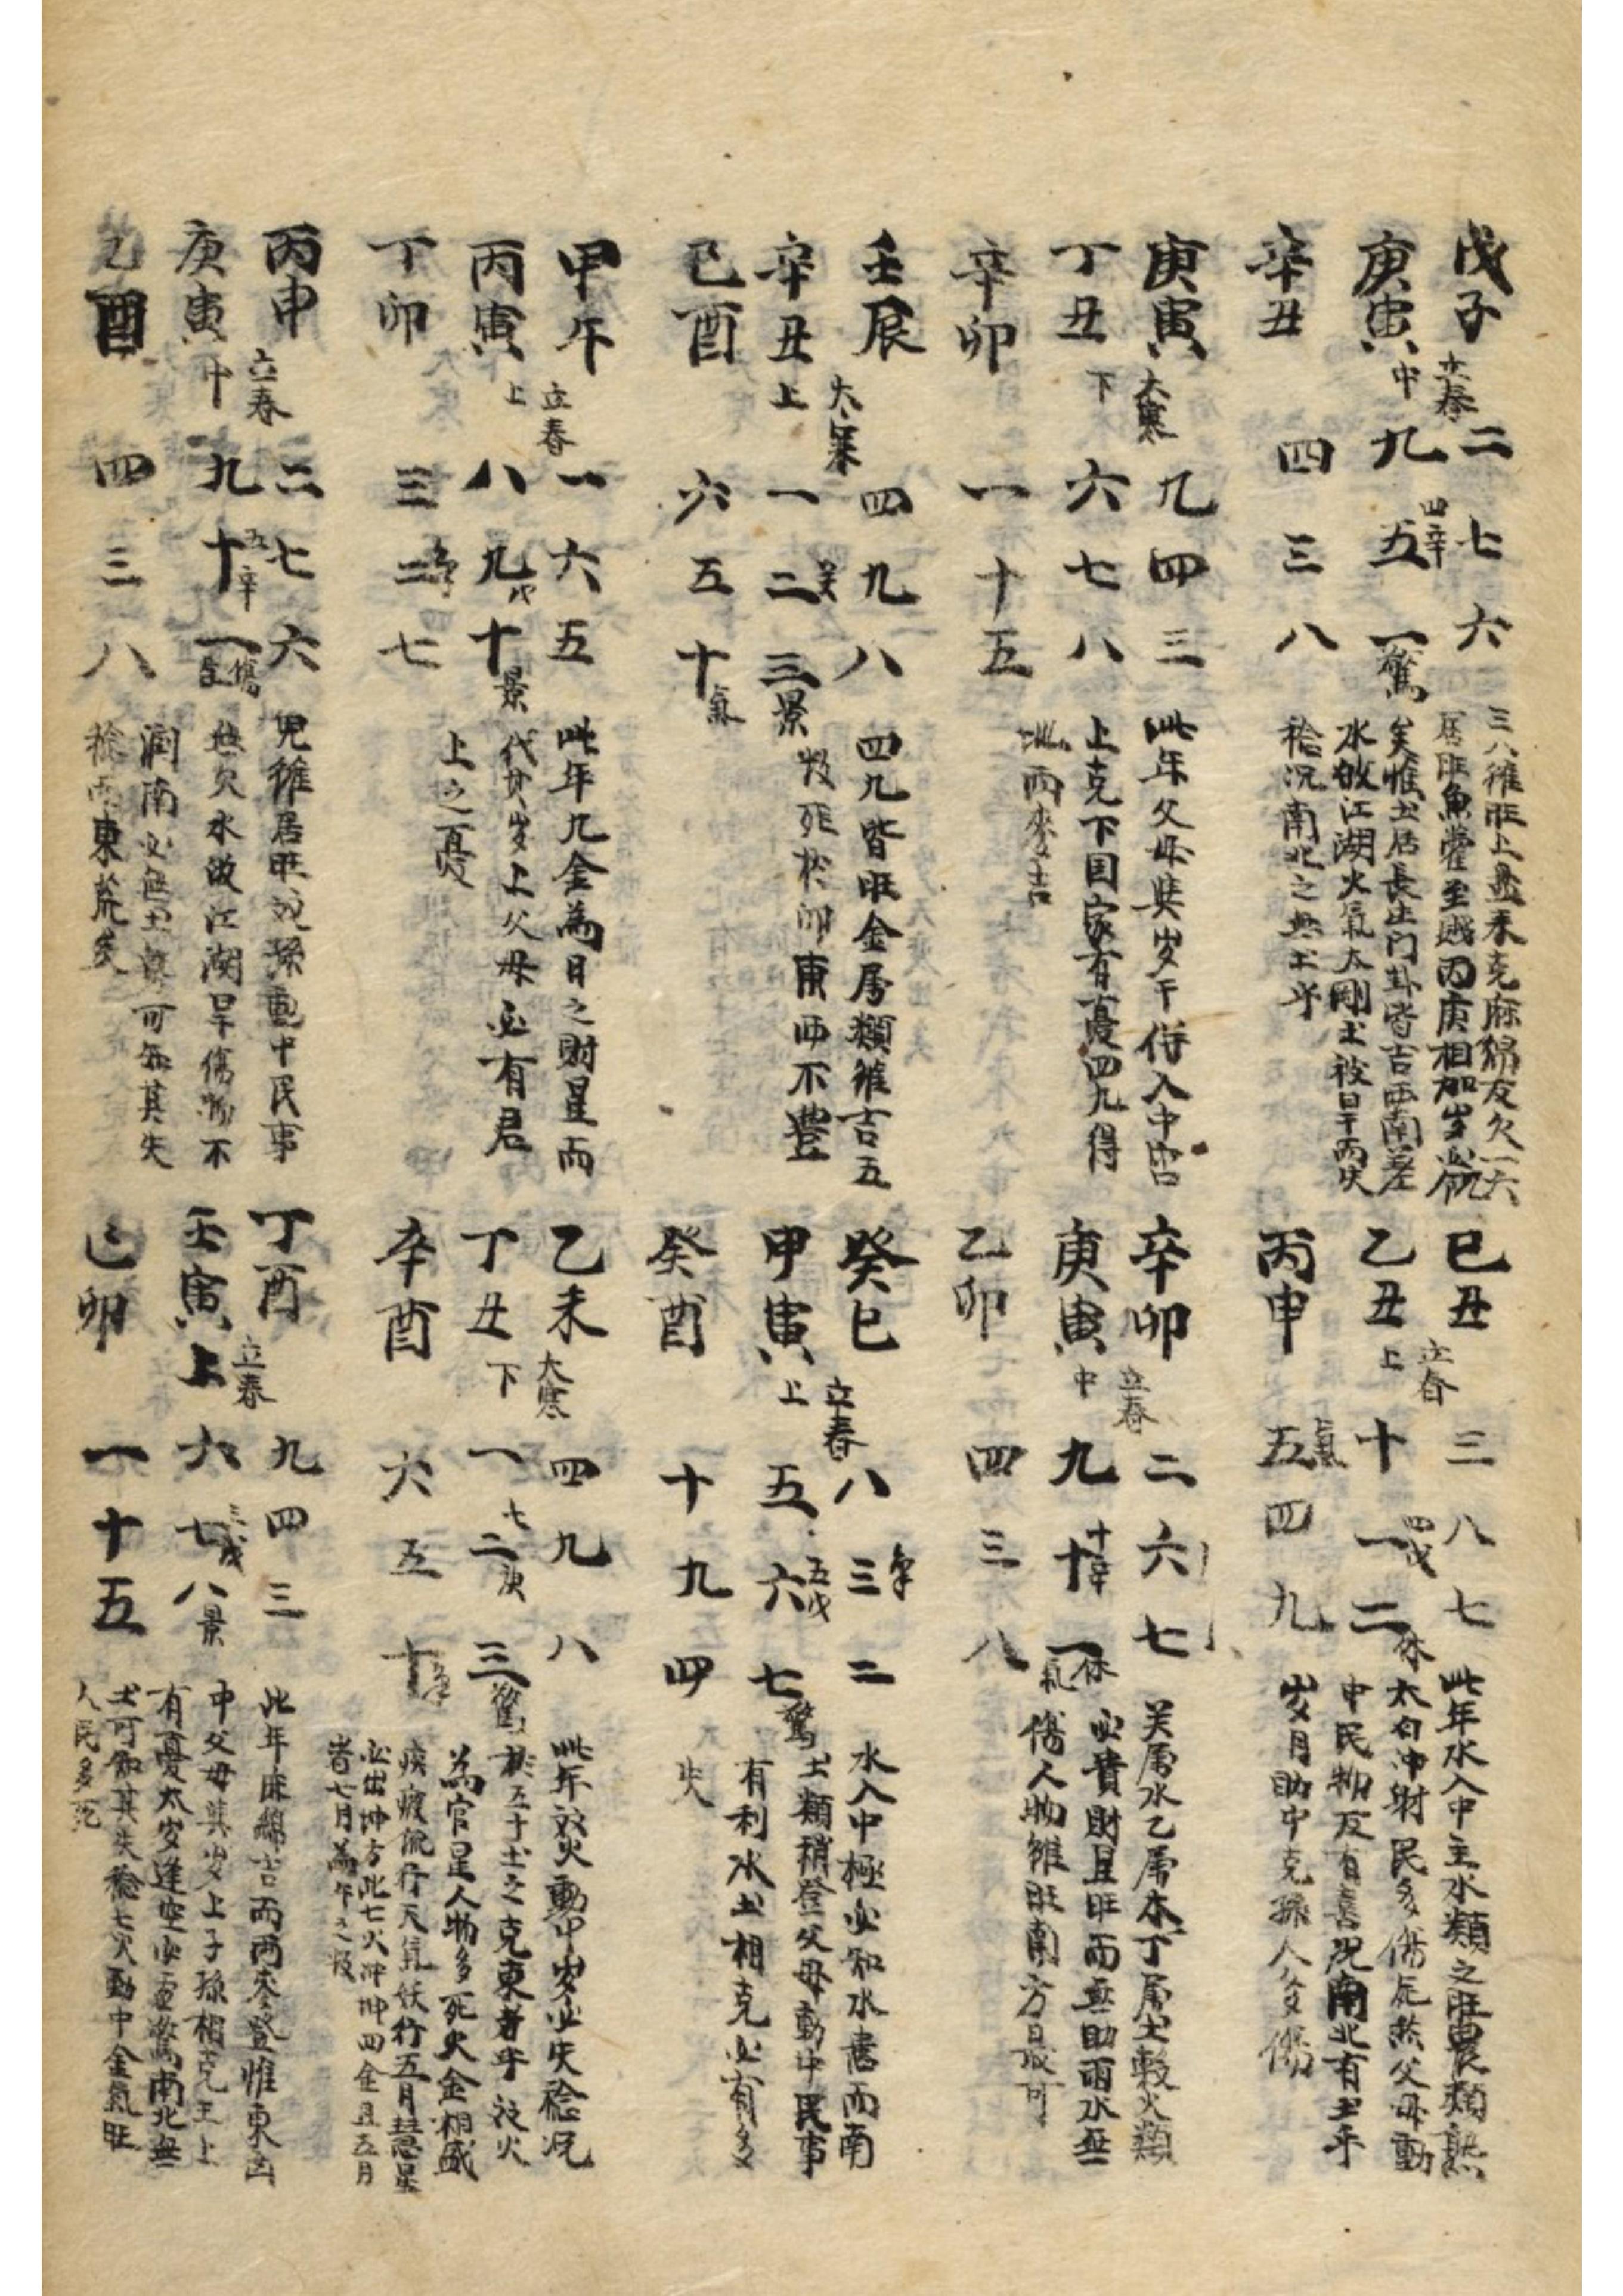 戊子立春二七六
庚寅中九五一驚
四辛
辛丑四三八
三八雖旺上克麻綿友欠一六
居旺魚至越丙庚相加歲
矣惟土居長生門卦皆吉西南差
水故江湖火氣太剛土被日干而失
稔況南北之無土乎
己丑立春三八七
乙丑上十一二休
四戊
丙申五四九
此年水入中主水類之旺農類熟
太白冲射民多傷虎煞父母動
中民物反有喜況南北有土乎
歲月助中克孫人多傷
庚寅大寒九四三
丁丑下六七八
辛卯一十五
此年父母與歲干侍入中宮
上克下国家有憂四九得
地西麥吉
辛卯立春二六七
庚寅中九十一休氣
十辛
乙卯四三八
关屬水乙屬木丁屬土穀火類
必貴財且旺而無助雨水無
傷人物雖旺南方最可
壬辰大寒四九八
辛丑上一二三景
关
己酉六五十氣
四九皆旺金屬類雖吉五
卯東西不豊
癸巳立春八三二
甲寅上五六七驚
五戊
癸酉十九四
水入中極必知水害而南
土類稍登父母動中民事
有利水土相克必有多
失
甲午立春一六五
丙寅上八九十景
戊
丁卯三二七
此年九金為日之財星而
代其歲上父母必有君
上之憂
乙未大寒四九八
丁丑下一二三驚
七庚
辛酉六五十
此年火動中歲必失稔況
五十土之克東者乎火
為官星人物多死火金相盛
疾疲流行天氣妖行五月彗星
必出坤方此七火冲坤四金且五月
皆七月為午之
丙申立春二七六
庚寅中九十一傷
五辛
乙酉四三八
兒雖居旺孫動中民事
無欠水故江湖旱傷物不
潤南必無土可知其失
稔西東荒矣
丁酉立春九四三
壬寅上六七八景
三戊
己卯一十五
此年麻綿吉而兩麥登惟東西
中父母其歲上子孫相克主上
有憂太歲逢空必驚南北無
土可知其失稔七火動中金氣旺
人民多死